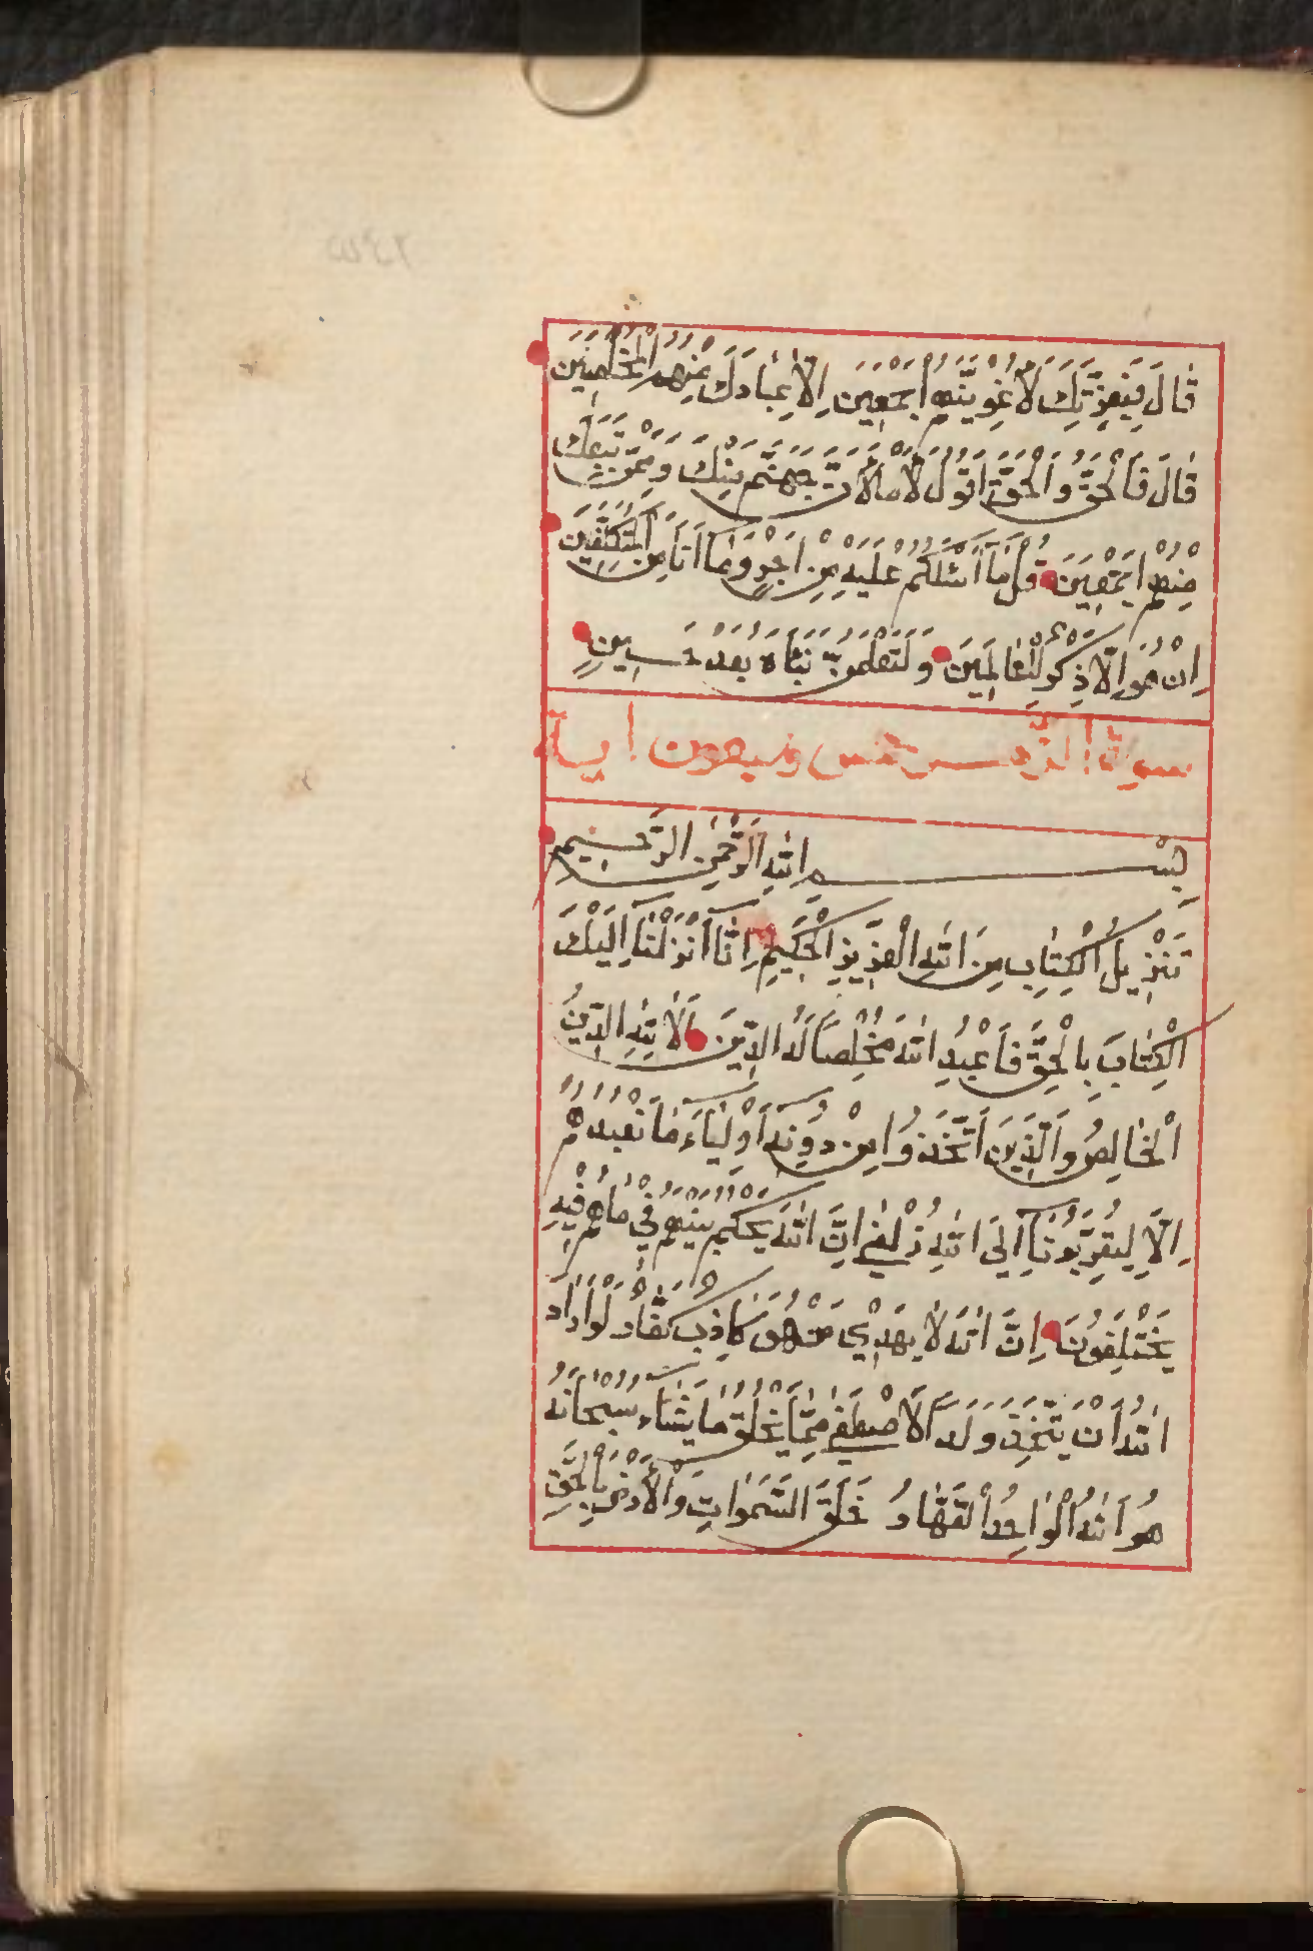 قَالَ فَبِعِزَّتِكَ لَأُغْوِيَنَّهُمْ أَجْمَعِينَ إِلَّا عِبَادَكَ مِنْهُمُ الْمُخْلَصِينَ
قَالَ فَالْحَقُّ وَالْحَقَّ أَقُولُ لَأَمْلَأَنَّ جَهَنَّمَ مِنْكَ وَمِمَّنْ تَبِعَكَ
مِنْهُمْ أَجْمَعِينَ قُلْ مَا أَسْئَلُكُمْ عَلَيْهِ مِنْ أَجْرٍ وَمَا أَنَا مِنَ الْمُتَكَلِّفِينَ
إِنْ هُوَ إِلَّا ذِكْرٌ لِلْعَالَمِينَ وَلَتَعْلَمُنَّ نَبَأَهُ بَعْدَ حِينٍ
سورة الزمر خمس وسبعون آية
بِسْمِ اللهِ الرَّحْمٰنِ الرَّحِيمِ
تَنْزِيلُ الْكِتَابِ مِنَ اللهِ الْعَزِيزِ الْحَكِيمِ إِنَّا أَنْزَلْنَا إِلَيْكَ
الْكِتَابَ بِالْحَقِّ فَاعْبُدِ اللهَ مُخْلِصًا لَهُ الدِّينَ أَلَا لِلهِ الدِّينُ
الْخَالِصُ وَالَّذِينَ اتَّخَذُوا مِنْ دُونِهِ أَوْلِيَاءَ مَا نَعْبُدُهُمْ
إِلَّا لِيُقَرِّبُونَا إِلَى اللهِ زُلْفَى إِنَّ اللهَ يَحْكُمُ بَيْنَهُمْ فِي مَا هُمْ فِيهِ
يَخْتَلِفُونَ إِنَّ اللهَ لَا يَهْدِي مَنْ هُوَ كَاذِبٌ كَفَّارٌ لَوْ أَرَادَ
اللهُ أَنْ يَتَّخِذَ وَلَدًا لَاصْطَفَى مِمَّا يَخْلُقُ مَا يَشَاءُ سُبْحَانَهُ
هُوَ اللهُ الْوَاحِدُ الْقَهَّارُ خَلَقَ السَّمٰوَاتِ وَالْأَرْضَ بِالْحَقِّ